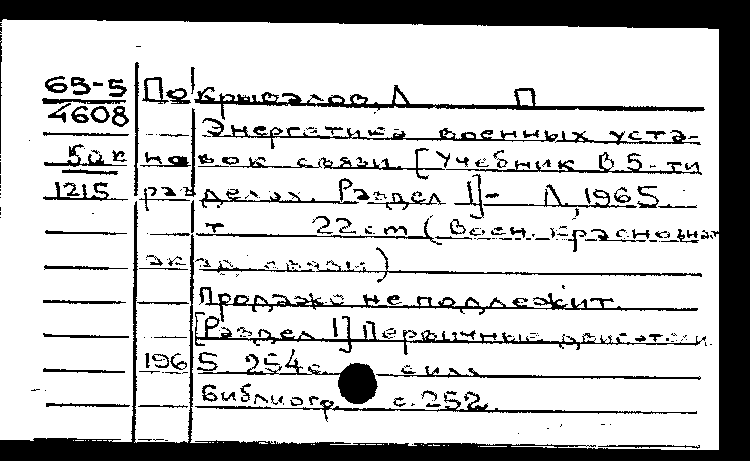 65-5 Покрывалов, Л П
4608
Энергетика военных уста-
5ак новок связи. [Учебник В 5-ти
1215 разделах. Раздел I] - Л, 1965.
т 22 cm (Воен. краснознам
акад связи)
Продаже не подлежит.
[Раздел I] Первичные двигатели
1965 254 с. с илл
Библиогр. с. 252.